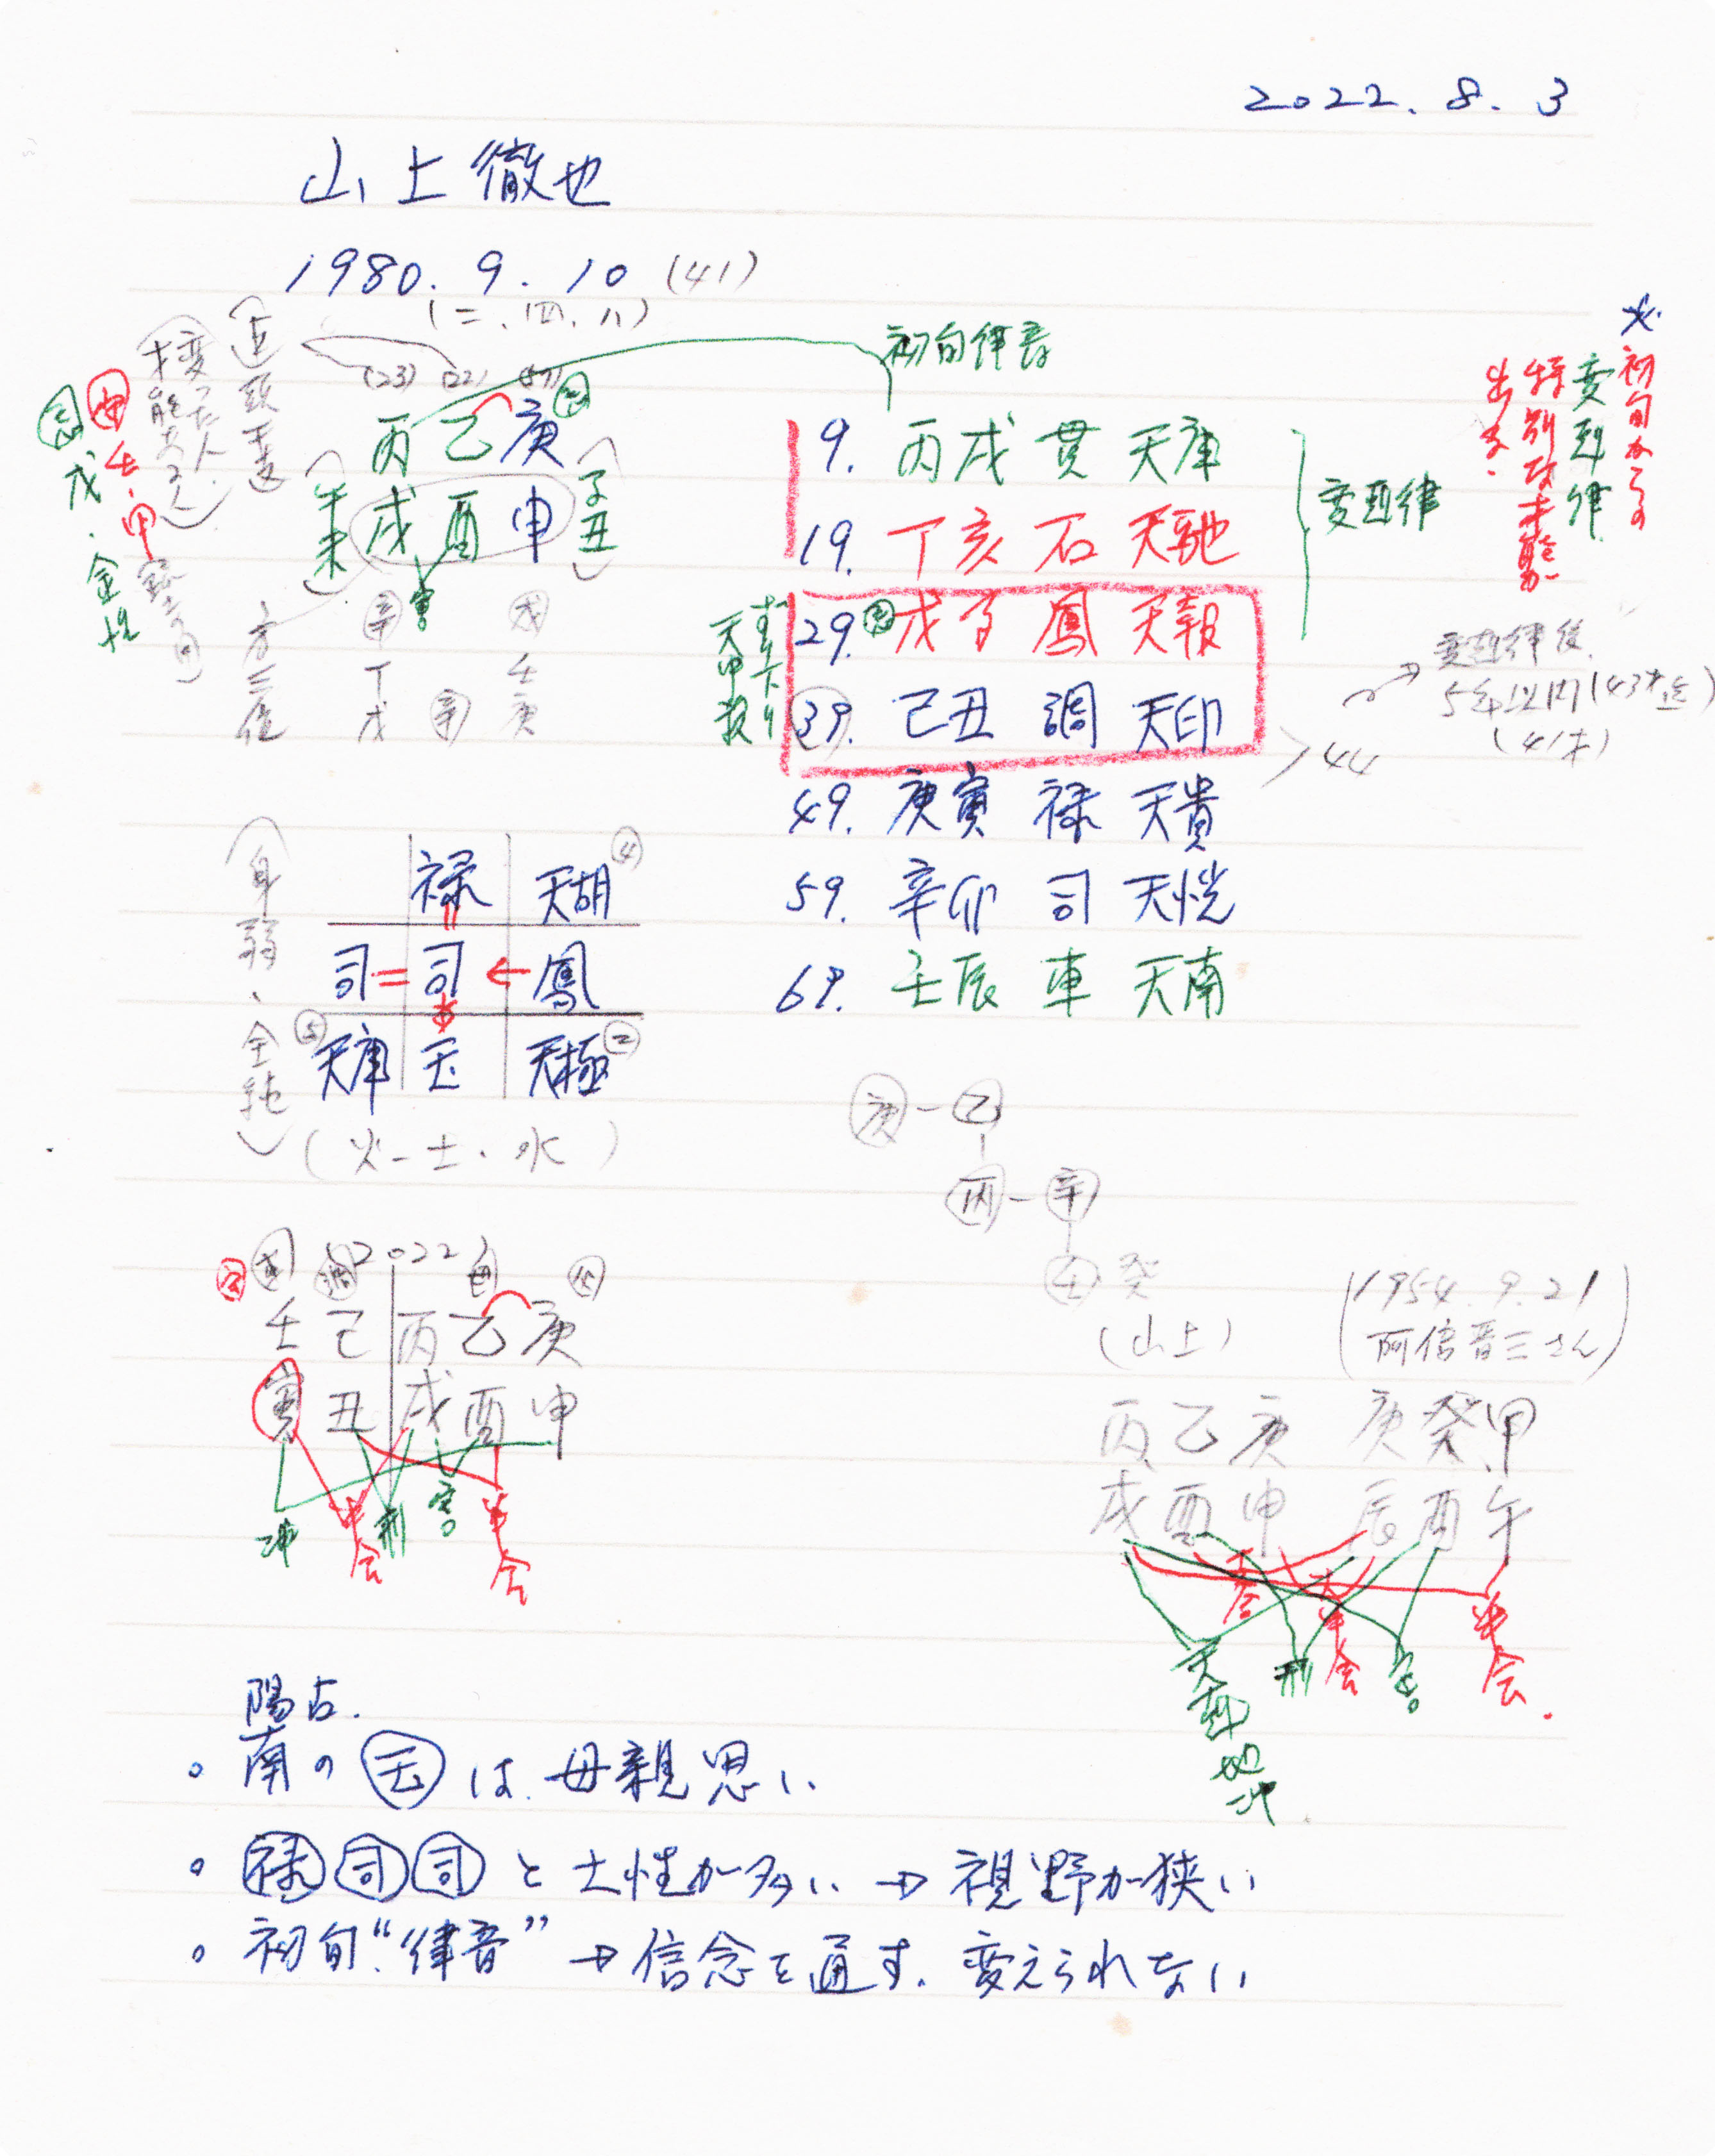 2022. 8. 3
山上徹也
1980. 9. 10 (41)
(二、四、八)
(23) (22) (57)
丙乙庚
戌酉申
(午未)
(子丑)
害
辛 戊
丁 壬
戊 辛 庚
方三位
変った人
忌 戊・金性
初旬律音
9. 丙戌 貫 天庫
19. 丁亥 石 天馳
29. 戊子 鳳 天報
39. 己丑 調 天印
49. 庚寅 禄 天貴
59. 辛卯 司 天恍
69. 壬辰 車 天南
変剋律
天中殺
※初旬からの
変剋律
出る。
変剋律後
5年以内(43才迄)
(41才)
44
(身弱、全鈍)
禄 天胡 ④
司=司←鳳
⑤ 天庫 玉 天極 ②
(火-土・水)
庚-乙
丙-辛
壬 癸
(山上)
(2022)
壬己丙乙庚
寅丑戌酉申
冲 半会 刑 害 半会
(1954. 9. 21
阿倍晋三さん)
丙乙庚 庚癸甲
戌酉申 辰酉午
支合 刑 大半会 害 半会.
天剋地冲
陽占.
。南の玉は母親思い
。禄司司と土性が多い→視野が狭い
。初旬“律音”→信念を通す、変えられない